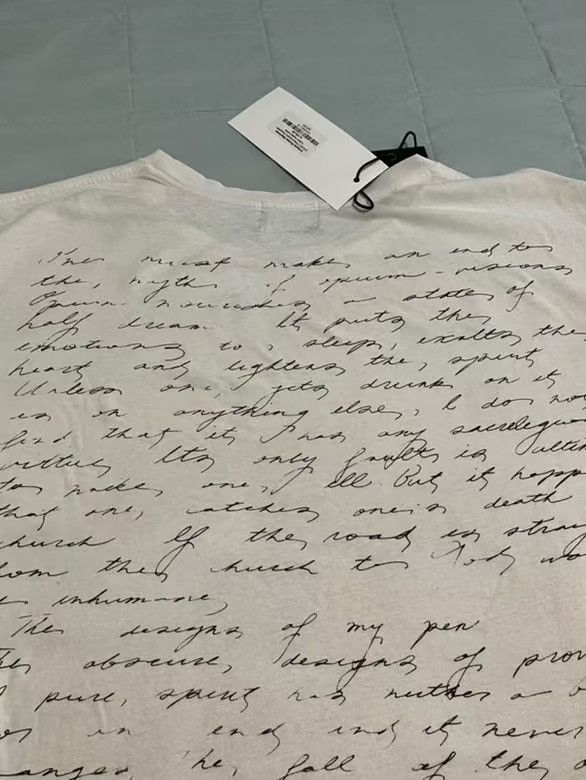 One must make an end to
the, myth of opium-visions
Opium nourishes a state of
half dream. It puts the
emotions to sleep, exalts the
heart and lightens the, spirit
Unless one, gets drunk on it
as on anything else, I do no
find that it has any sacrilegiou
virtue Its only fault is
to make one, ill But it happ
that one, catches one's death
church If the road is straig
from the church to God, wo
inhumane,
The designs of my pen
The obscure, designs of prov
pure, spirit has neither a b
in end and it never
the, fall of the